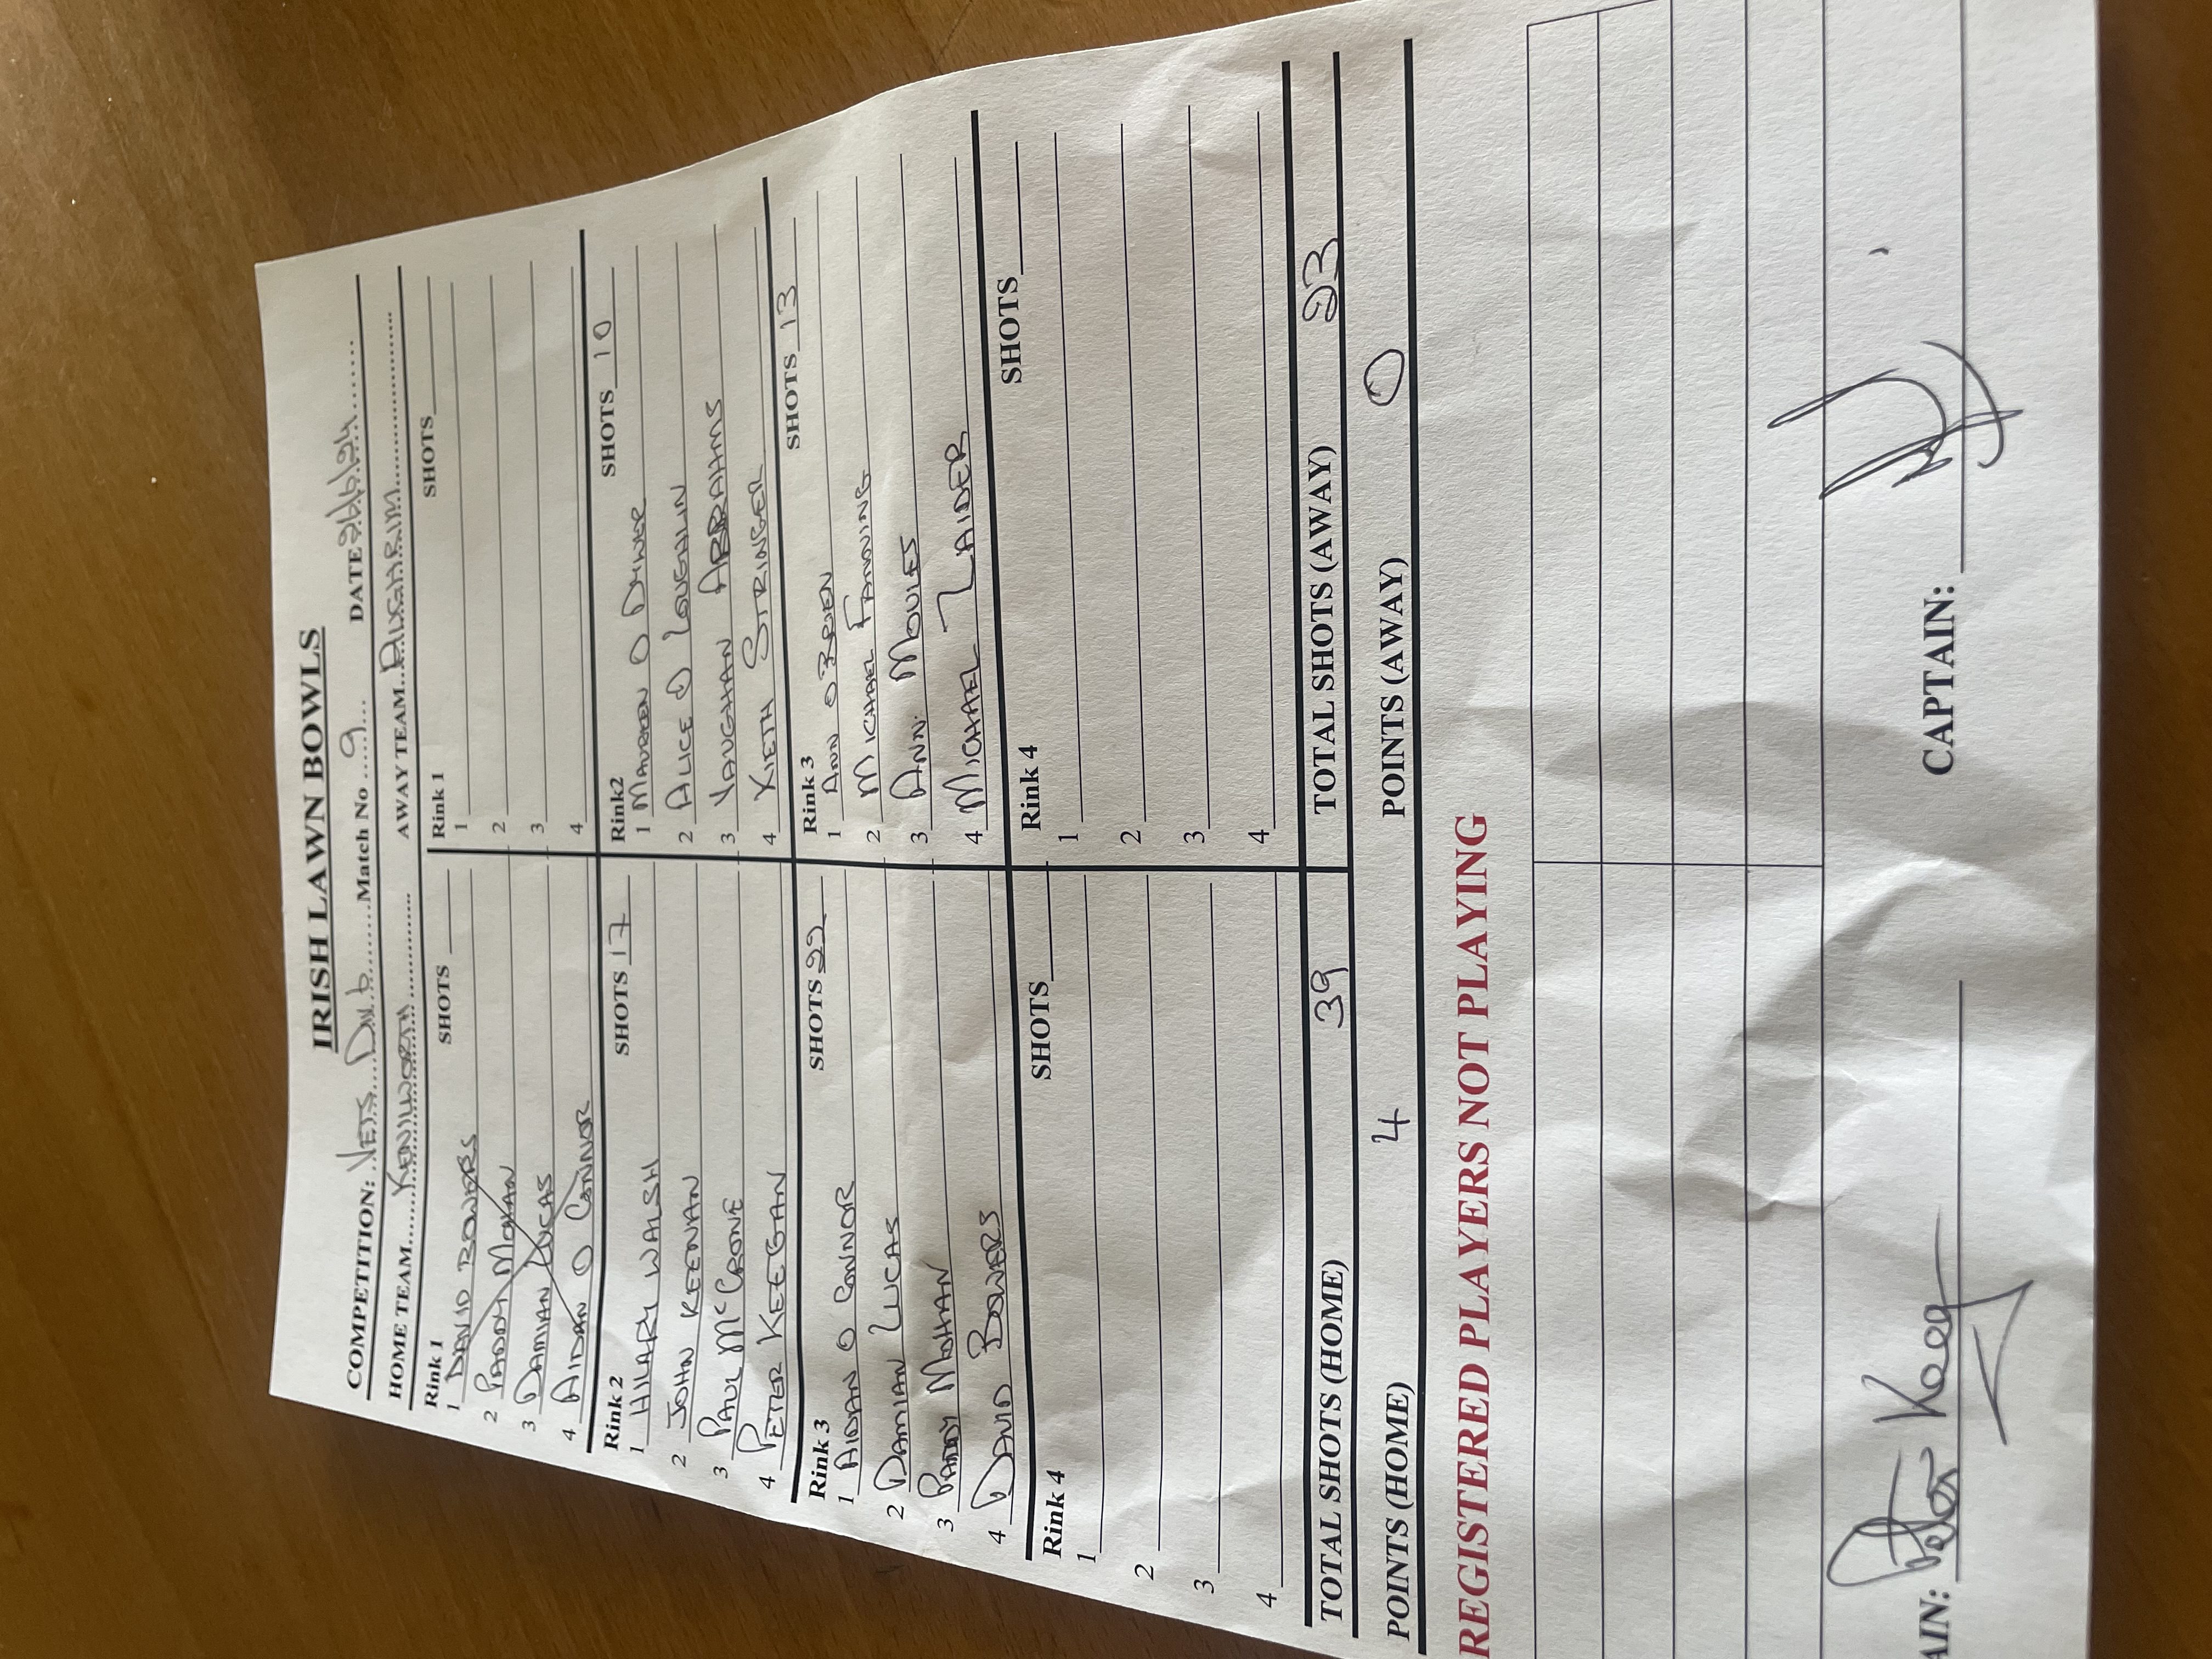 IRISH LAWN BOWLS
COMPETITION: VETS Div 6 Match No 9 DATE 26/6/24
HOME TEAM KENILWORTH AWAY TEAM AUGHRIM
Rink 1 SHOTS
1 DAVID BOWERS
2 PADDY MOHAN
3 DAMIAN LUCAS
4 AIDAN O CONNOR
Rink 1 SHOTS
1
2
3
4
Rink 2 SHOTS 17
1 HILARY WALSH
2 JOHN KEENAN
3 PAUL McCRONE
4 PETER KEEGAN
Rink2 SHOTS 10
1 MAUREEN O DWYER
2 ALICE O LOUGHLIN
3 VAUGHAN ABRAHAMS
4 KIETH STRINGER
Rink 3 SHOTS 22
1 AIDAN O CONNOR
2 DAMIAN LUCAS
3 PADDY MOHAN
4 DAVID BOWERS
Rink 3 SHOTS 13
1 ANN O BRIEN
2 MICHAEL FANNING
3 ANN MOULES
4 MICHAEL LAIDER
Rink 4 SHOTS
1
2
3
4
Rink 4 SHOTS
1
2
3
4
TOTAL SHOTS (HOME) 39 TOTAL SHOTS (AWAY) 23
POINTS (HOME) 4 POINTS (AWAY) 0
REGISTERED PLAYERS NOT PLAYING
AIN: Peter Keeg CAPTAIN: